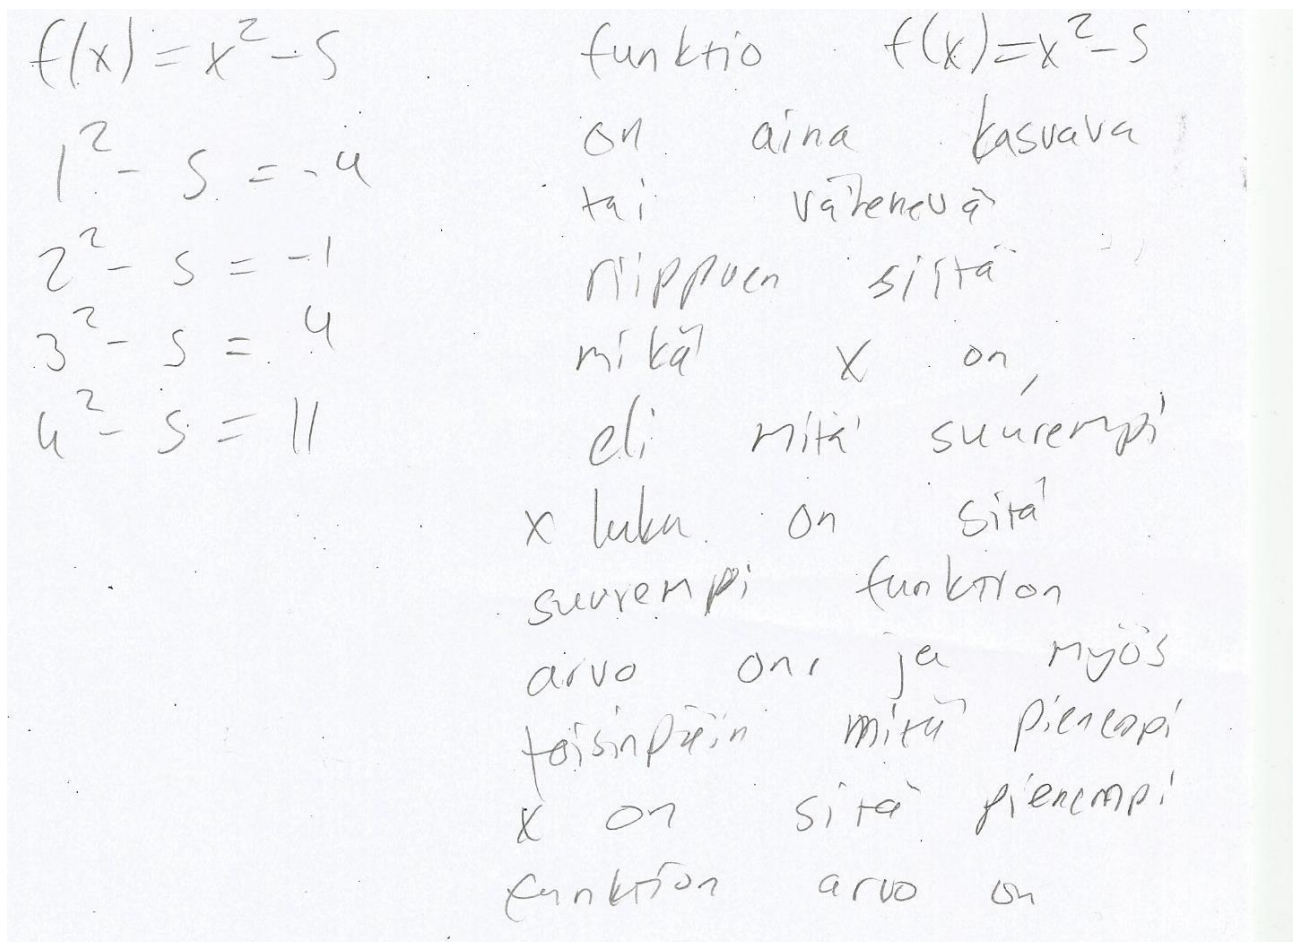 f(x) = x² - 5
1² - 5 = -4
2² - 5 = -1
3² - 5 = 4
4² - 5 = 11
funktio f(x) = x² - 5
on aina kasvava
tai vähenevä
riippuen siitä
mikä x on,
eli mitä suurempi
x luku on sitä
suurempi funktion
arvo on, ja myös
toisinpäin mitä pienempi
x on sitä pienempi
funktion arvo on